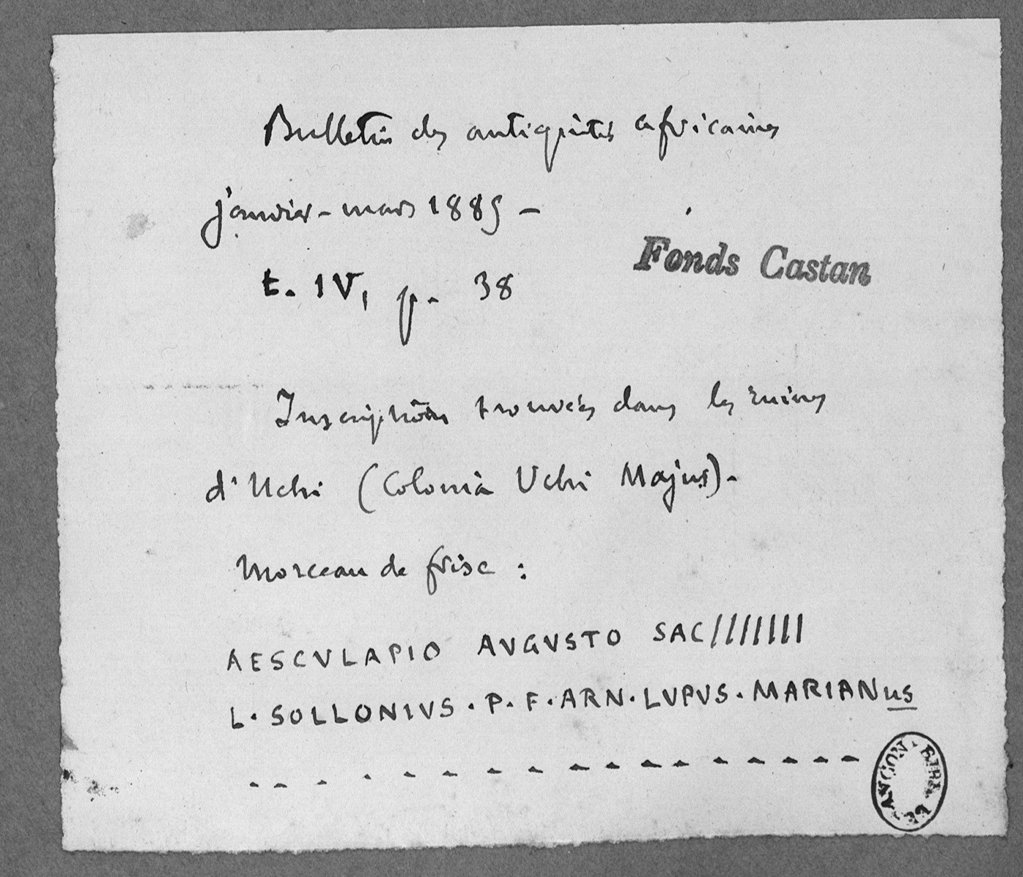 Bulletin des antiquités africaines
janvier-mars 1885 -
t. IV, p. 38
Fonds Castan
Inscriptions trouvées dans les ruines
d'Uchi (Colonia Uchi Majus).
Morceau de frise :
AESCVLAPIO AVGVSTO SAC///////
L. SOLLONIVS . P. F. ARN. LVPVS. MARIANus
BIBL. DE
ANCON